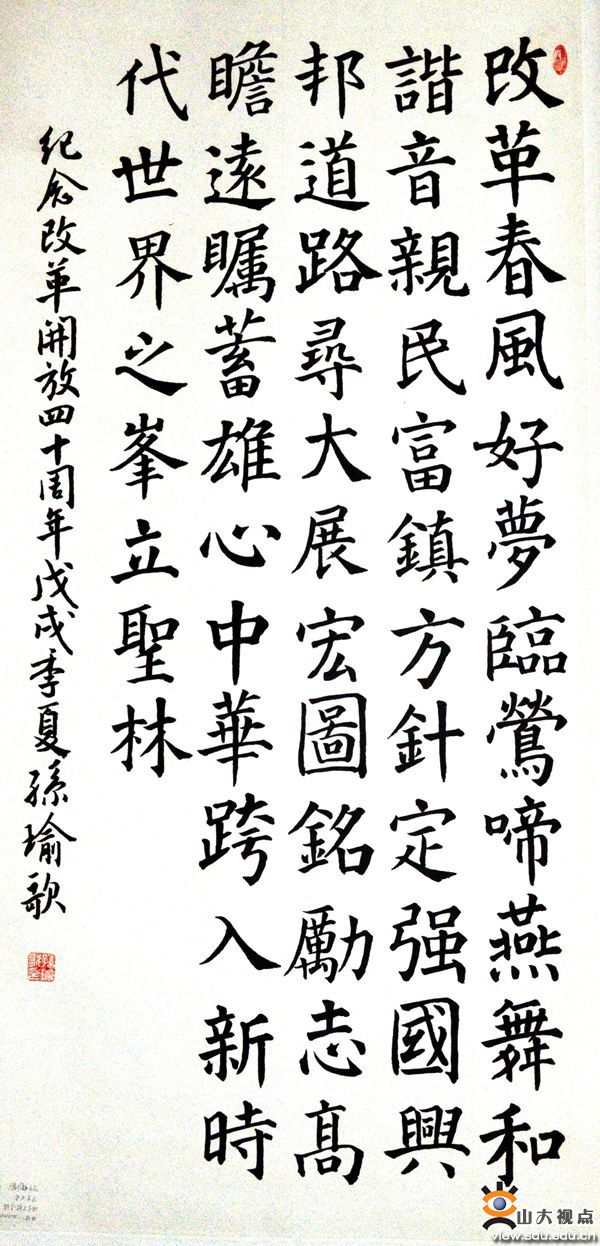 改革春風好夢臨鶯啼燕舞和
諧音親民富鎮方針定强國興
邦道路尋大展宏圖銘勵志高
瞻遠矚蓄雄心中華跨入新時
代世界之峯立聖林
纪念改革開放四十周年戊戌季夏孫瑜歌
山大视点
view.sdu.edu.cn